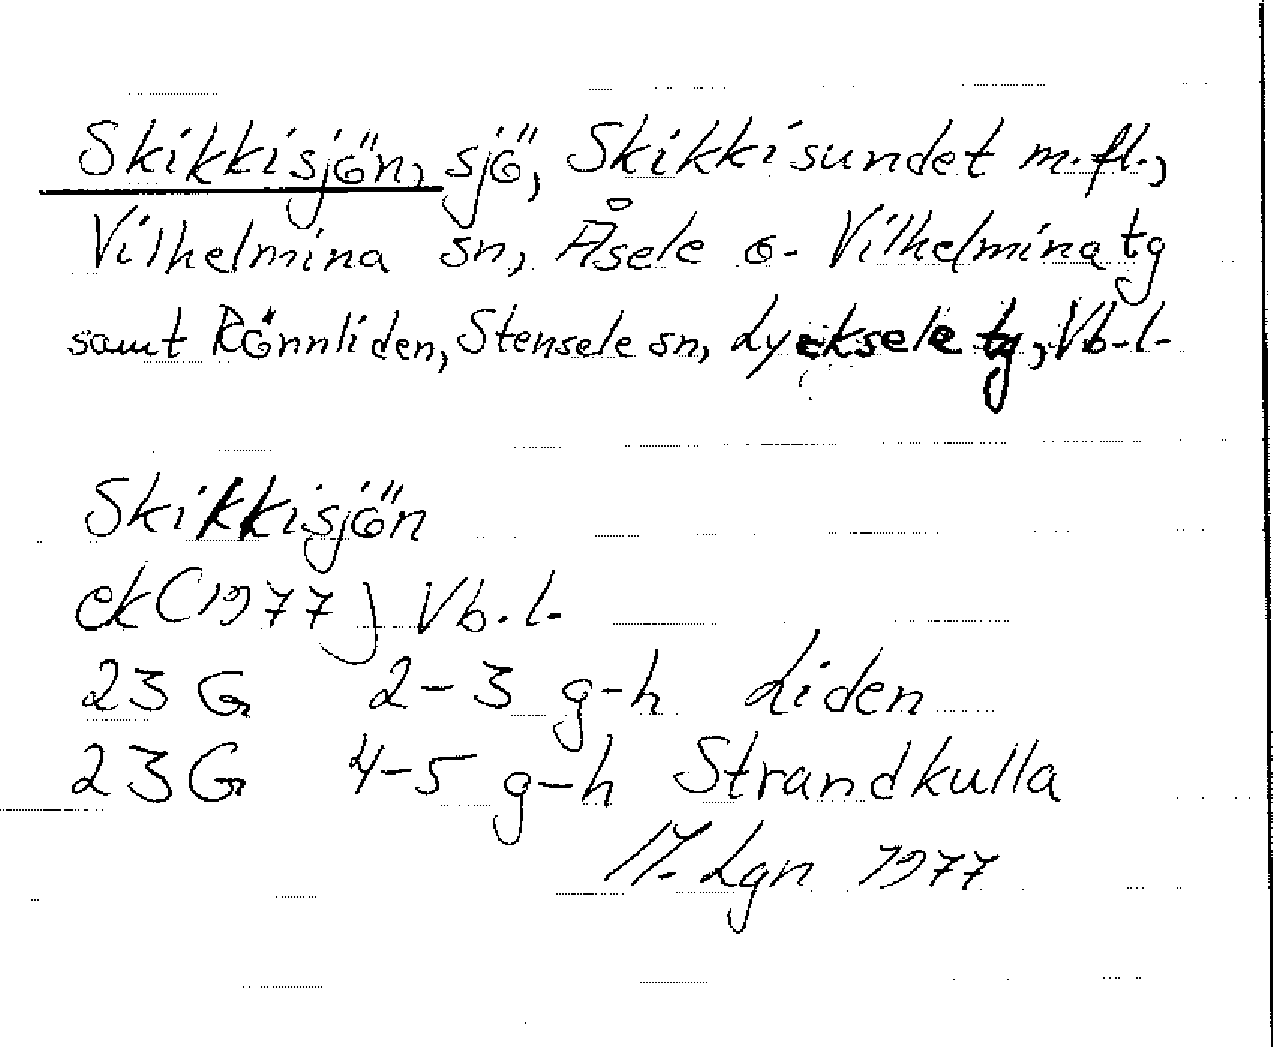 Skikkisjön, sjö, Skikkisundet m.fl.,
Vilhelmina sn, Åsele o. Vilhelmina tg
samt Rönnliden, Stensele sn, Lycksele tg, Vb.l.
Skikkisjön
ek (1977) Vb.l.
23 G 2-3 g-h Liden
23G 4-5 g-h Strandkulla
M. Lgn 1977